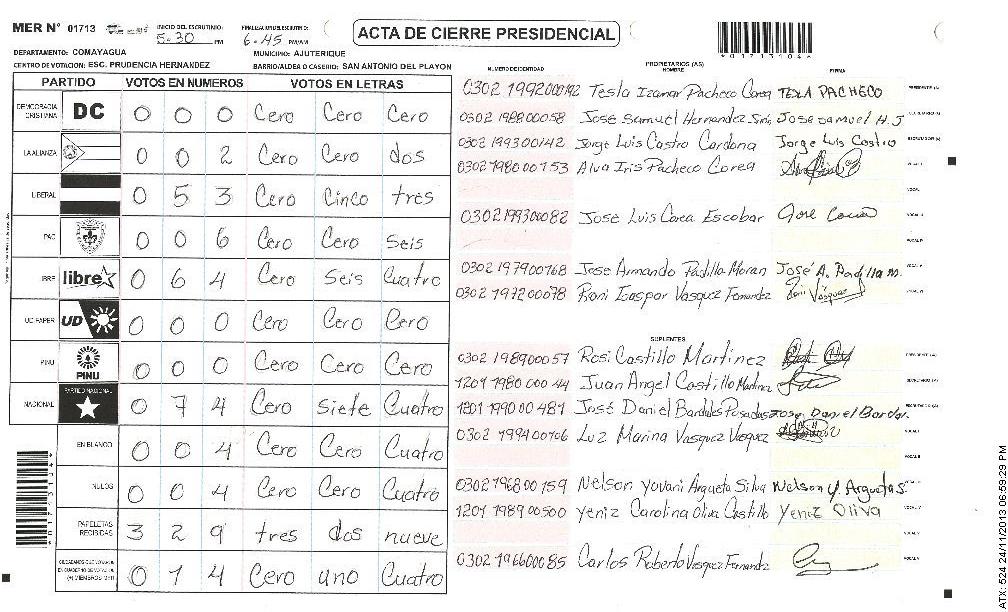 MER N° 01713
INICIO DEL ESCRUTINIO: 5-30 PM
FINALIZACION DEL ESCRUTINIO: 6-45 PM/AM
ACTA DE CIERRE PRESIDENCIAL
*01713104*
DEPARTAMENTO: COMAYAGUA
MUNICIPIO: AJUTERIQUE
CENTRO DE VOTACION: ESC. PRUDENCIA HERNANDEZ
BARRIO/ALDEA O CASERIO: SAN ANTONIO DEL PLAYON
PARTIDO VOTOS EN NUMEROS VOTOS EN LETRAS
DEMOCRACIA CRISTIANA DC 0 0 0 Cero Cero Cero
LA ALIANZA 0 0 2 Cero Cero dos
LIBERAL 0 5 3 Cero Cinco tres
PAC 0 0 6 Cero Cero Seis
LIBRE libre 0 6 4 Cero Seis Cuatro
UD-FAPER UD 0 0 0 Cero Cero Cero
PINU PINU 0 0 0 Cero Cero Cero
NACIONAL PARTIDO NACIONAL 0 7 4 Cero Siete Cuatro
EN BLANCO 0 0 4 Cero Cero Cuatro
NULOS 0 0 4 Cero Cero Cuatro
PAPELETAS RECIBIDAS 3 2 9 tres dos nueve
CIUDADANOS QUE VOTARON EN CUADERNO DE VOTACION (+) MIEMBROS MER 0 1 4 Cero uno Cuatro
NUMERO DE IDENTIDAD PROPIETARIOS (AS) NOMBRE FIRMA
Tesla Izamar Pacheco Corea TESLA PACHECO PRESIDENTE (A)
0302 198800058 José Samuel Hernandez José Samuel H.J SECRETARIO (A)
0302 199300142 Jorge Luis Castro Cardona Jorge Luis Castro ESCRUTADOR (A)
0302 1980 00153 Alva Iris Pacheco Corea VOCAL I
0302 199300082 Jose Luis Corea Escobar Jose Corea
0302 197900168 Jose Armando Padilla Moran José A. Padilla M.
0302 197200078 Roni Gaspar Vasquez Fernandez Roni Vásquez
SUPLENTES
0302 198900057 Rosi Castillo Martinez PRESIDENTE (A)
1201 1980 000 44 Juan Angel Castillo Martinez SECRETARIO (A)
1201 1990 00 481 José Daniel Bardales Posadas Jose Daniel Bardar ESCRUTADOR (A)
0302 199400106 Luz Marina Vasquez Vasquez VOCAL I
0302 196800159 Nelson Yovani Argueta Silva Nelson Y Argueta S.
1201 1989 00500 Yeniz Carolina Oliva Castillo Yeniz Oliva
0302 196600085 Carlos Roberto Vasquez Fernandez
ATX: 524 24/11/2013 06:59:29 PM